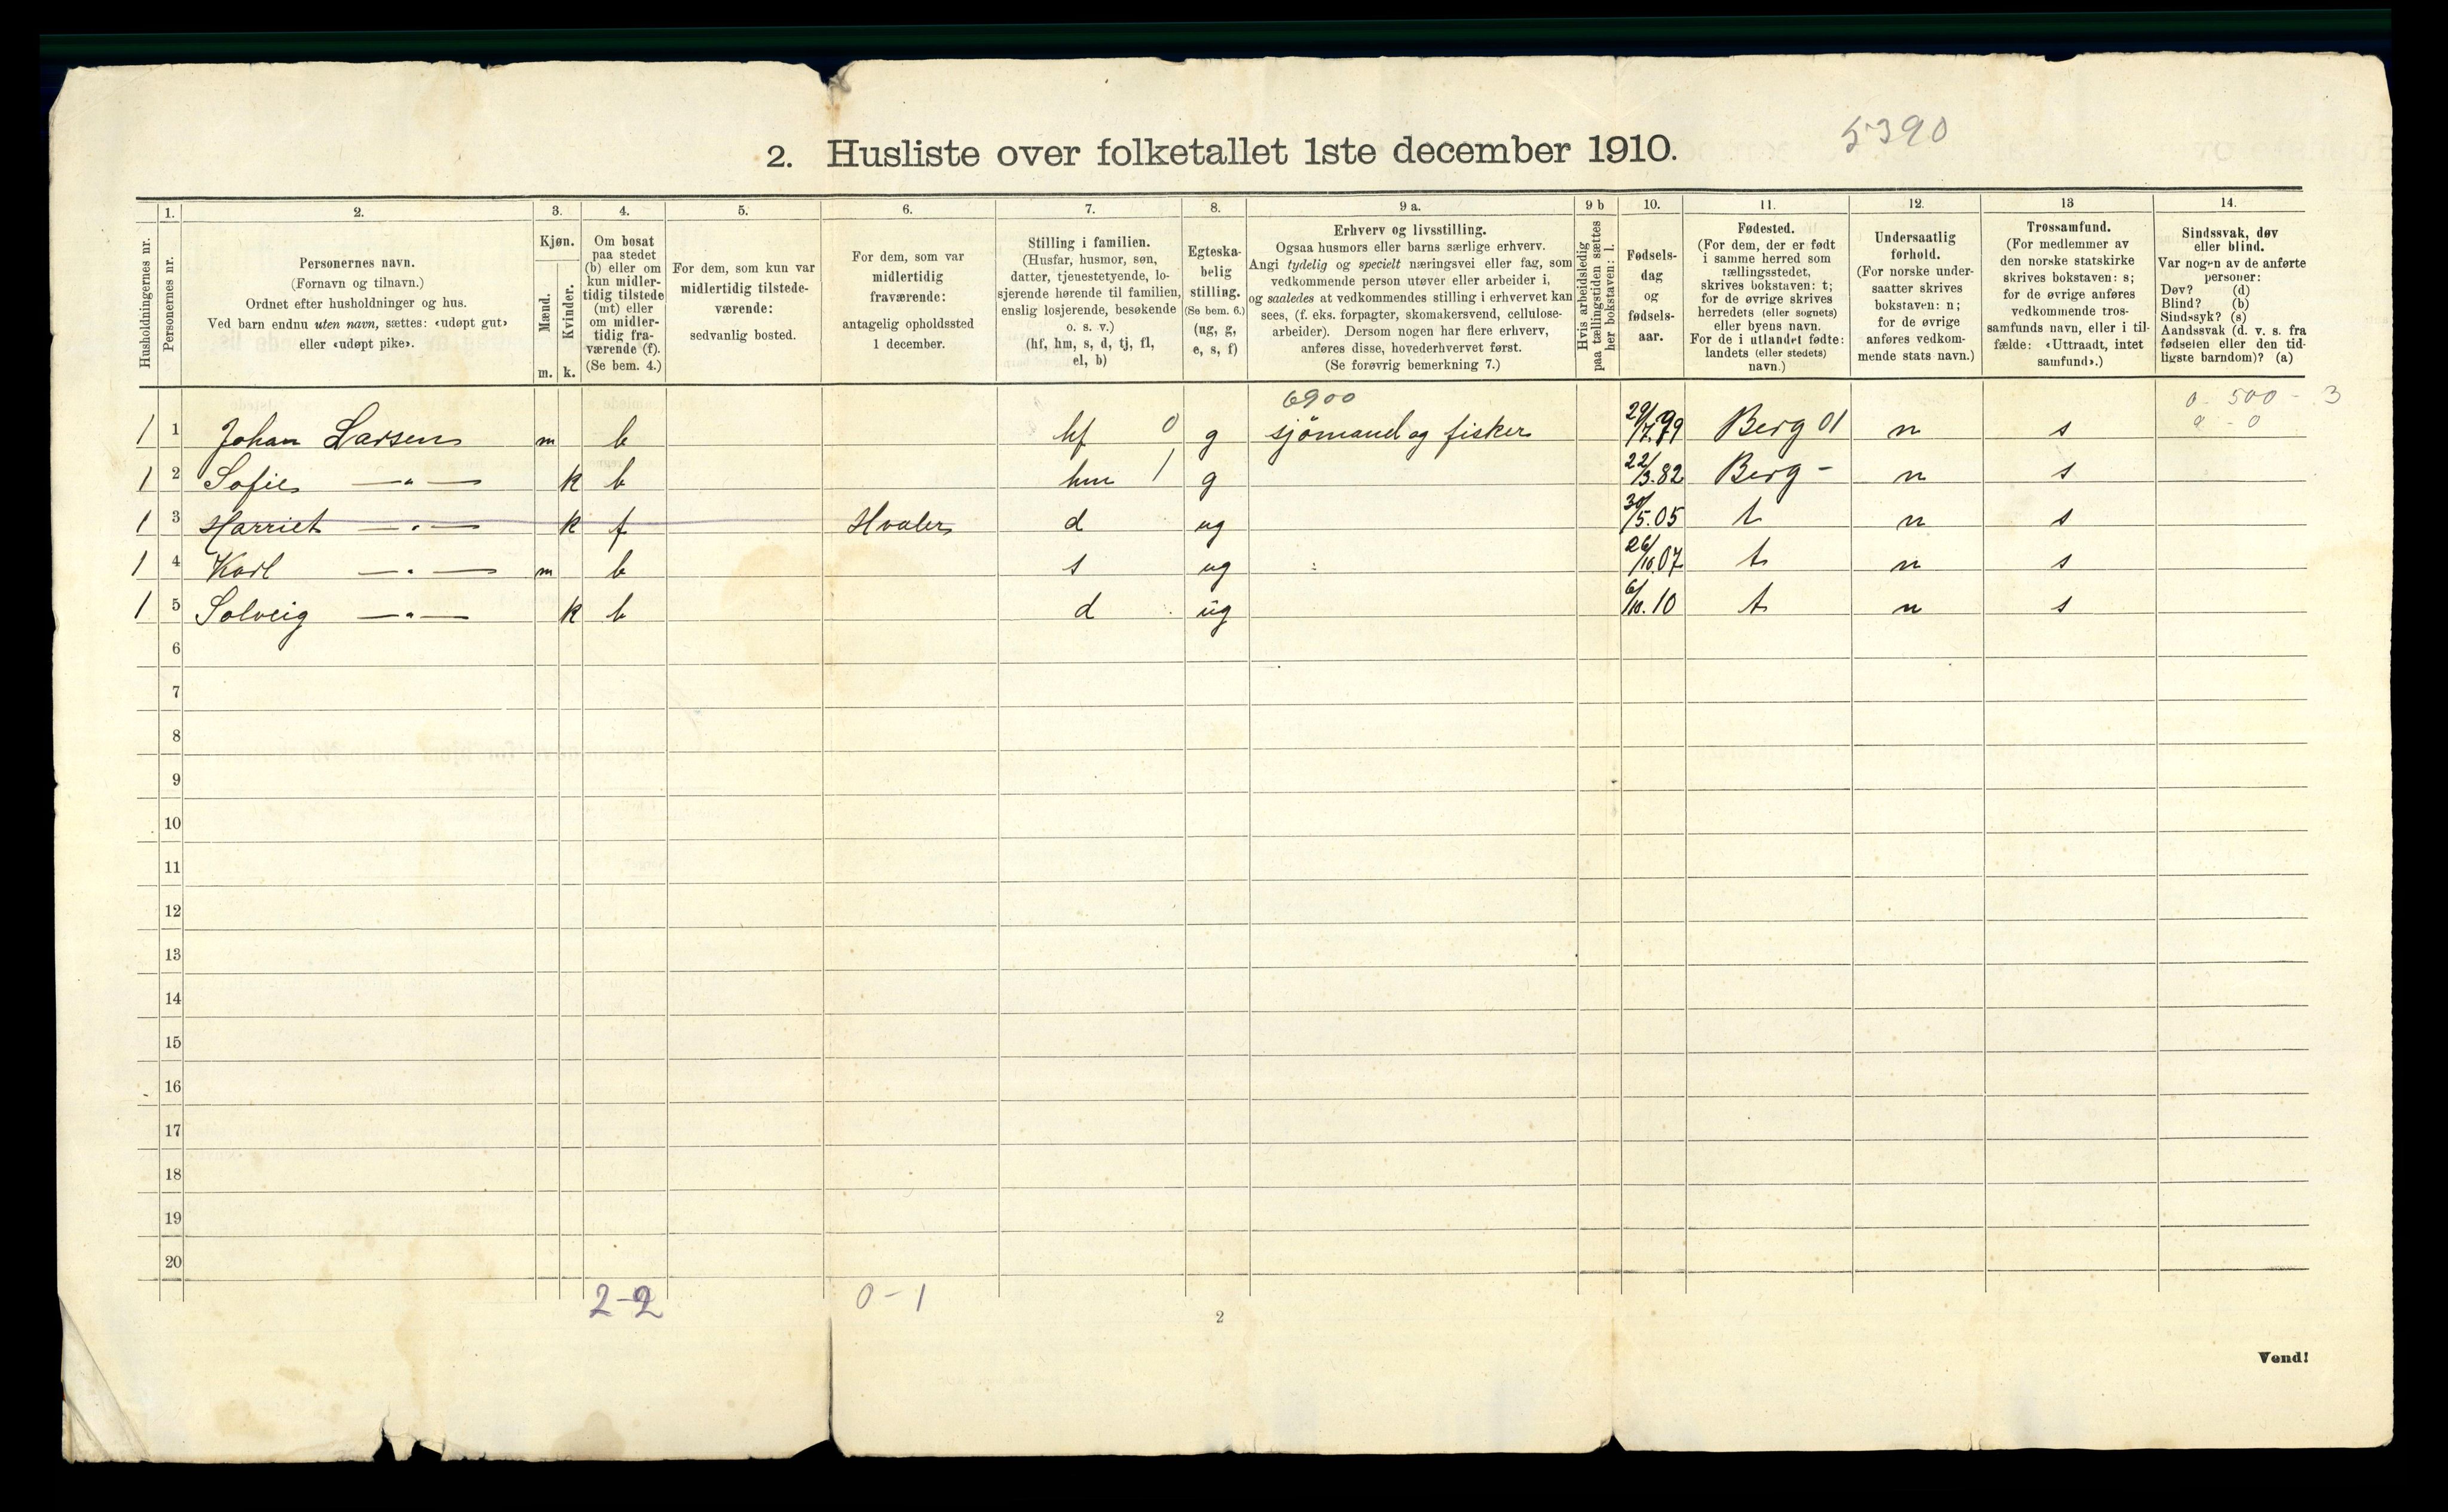 5390
2. Husliste over folketallet 1ste december 1910.
Husholdningernes nr.
1.
Personernes nr.
2.
Personernes navn.
(Fornavn og tilnavn.)
Ordnet efter husholdninger og hus.
Ved barn endnu uten navn, sættes: «udøpt gut»
eller «udøpt pike».
3.
Kjøn.
Mænd.
Kvinder.
m. k.
4.
Om bosat
paa stedet
(b) eller om
kun midler-
tidig tilstede
(mt) eller
om midler-
tidig fra-
værende (f).
(Se bem. 4.)
5.
For dem, som kun var
midlertidig tilstede-
værende:
sedvanlig bosted.
6.
For dem, som var
midlertidig
fraværende:
antagelig opholdssted
1 december.
7.
Stilling i familien.
(Husfar, husmor, søn,
datter, tjenestetyende, lo-
sjerende hørende til familien,
enslig losjerende, besøkende
o. s. v.)
(hf, hm, s, d, tj, fl,
el, b)
8.
Egteska-
belig
stilling.
(Se bem. 6.)
(ug, g,
e, s, f)
9 a.
Erhverv og livsstilling.
Ogsaa husmors eller barns særlige erhverv.
Angi tydelig og specielt næringsvei eller fag, som
vedkommende person utøver eller arbeider i,
og saaledes at vedkommendes stilling i erhvervet kan
sees, (f. eks. forpagter, skomakersvend, cellulose-
arbeider). Dersom nogen har flere erhverv,
anføres disse, hovederhvervet først.
(Se forøvrig bemerkning 7.)
9 b
Hvis arbeidsledig
paa tællingstiden sættes
her bokstaven: l.
10.
Fødsels-
dag
og
fødsels-
aar.
11.
Fødested.
(For dem, der er født
i samme herred som
tællingsstedet,
skrives bokstaven: t;
for de øvrige skrives
herredets (eller sognets)
eller byens navn.
For de i utlandet fødte:
landets (eller stedets)
navn.)
12.
Undersaatlig
forhold.
(For norske under-
saatter skrives
bokstaven: n;
for de øvrige
anføres vedkom-
mende stats navn.)
13
Trossamfund.
(For medlemmer av
den norske statskirke
skrives bokstaven: s;
for de øvrige anføres
vedkommende tros-
samfunds navn, eller i til-
fælde: «Uttraadt, intet
samfund».)
14.
Sindssvak, døv
eller blind.
Var nogen av de anførte
personer:
Døv? (d)
Blind? (b)
Sindssyk? (s)
Aandssvak (d. v. s. fra
fødselen eller den tid-
ligste barndom)? (a)
6900 0 - 500 - 3
1 1 Johan Larsen m b hf 0 g sjömand og fisker 29/7.79 Berg 01 n s 0
1 2 Sofie —"— k b hm 1 g 22/3.82 Berg - n s
1 3 Harriet —"— k f Hvaler d ug 30/5.05 t n s
1 4 Karl —"— m b s ug 26/10.07 t n s
1 5 Solveig —"— k b d ug 6/10.10 t n s
6
7
8
9
10
11
12
13
14
15
16
17
18
19
20
2-2 0-1
2
Vend!